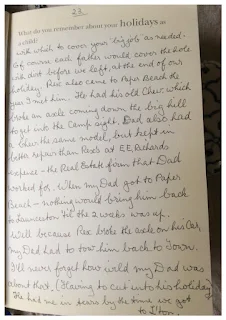 23
What do you remember about your holidays as
a child?
with which to cover your 'big job' as needed.
Of course each father would cover the hole
with dirt before we left, at the end of our
holiday. Rex also came to Paper Beach the
year I met him. He had his old Chev. which
broke an axle coming down the big hill
to get into the Camp sight. Dad also had
a Chev the same model, but kept in
better repair than Rex's at E.E. Richards
expense - the Real Estate firm that Dad
worked for. When my Dad got to Paper
Beach - nothing would bring him back
to Launceston 'til the 2 weeks was up.
Well because Rex broke the axle on his Car,
my Dad had to tow him back to Town.
I'll never forget how wild my Dad was
about that, (Having to cut into his holiday)
He had me in tears by the time we got
to L'ton.